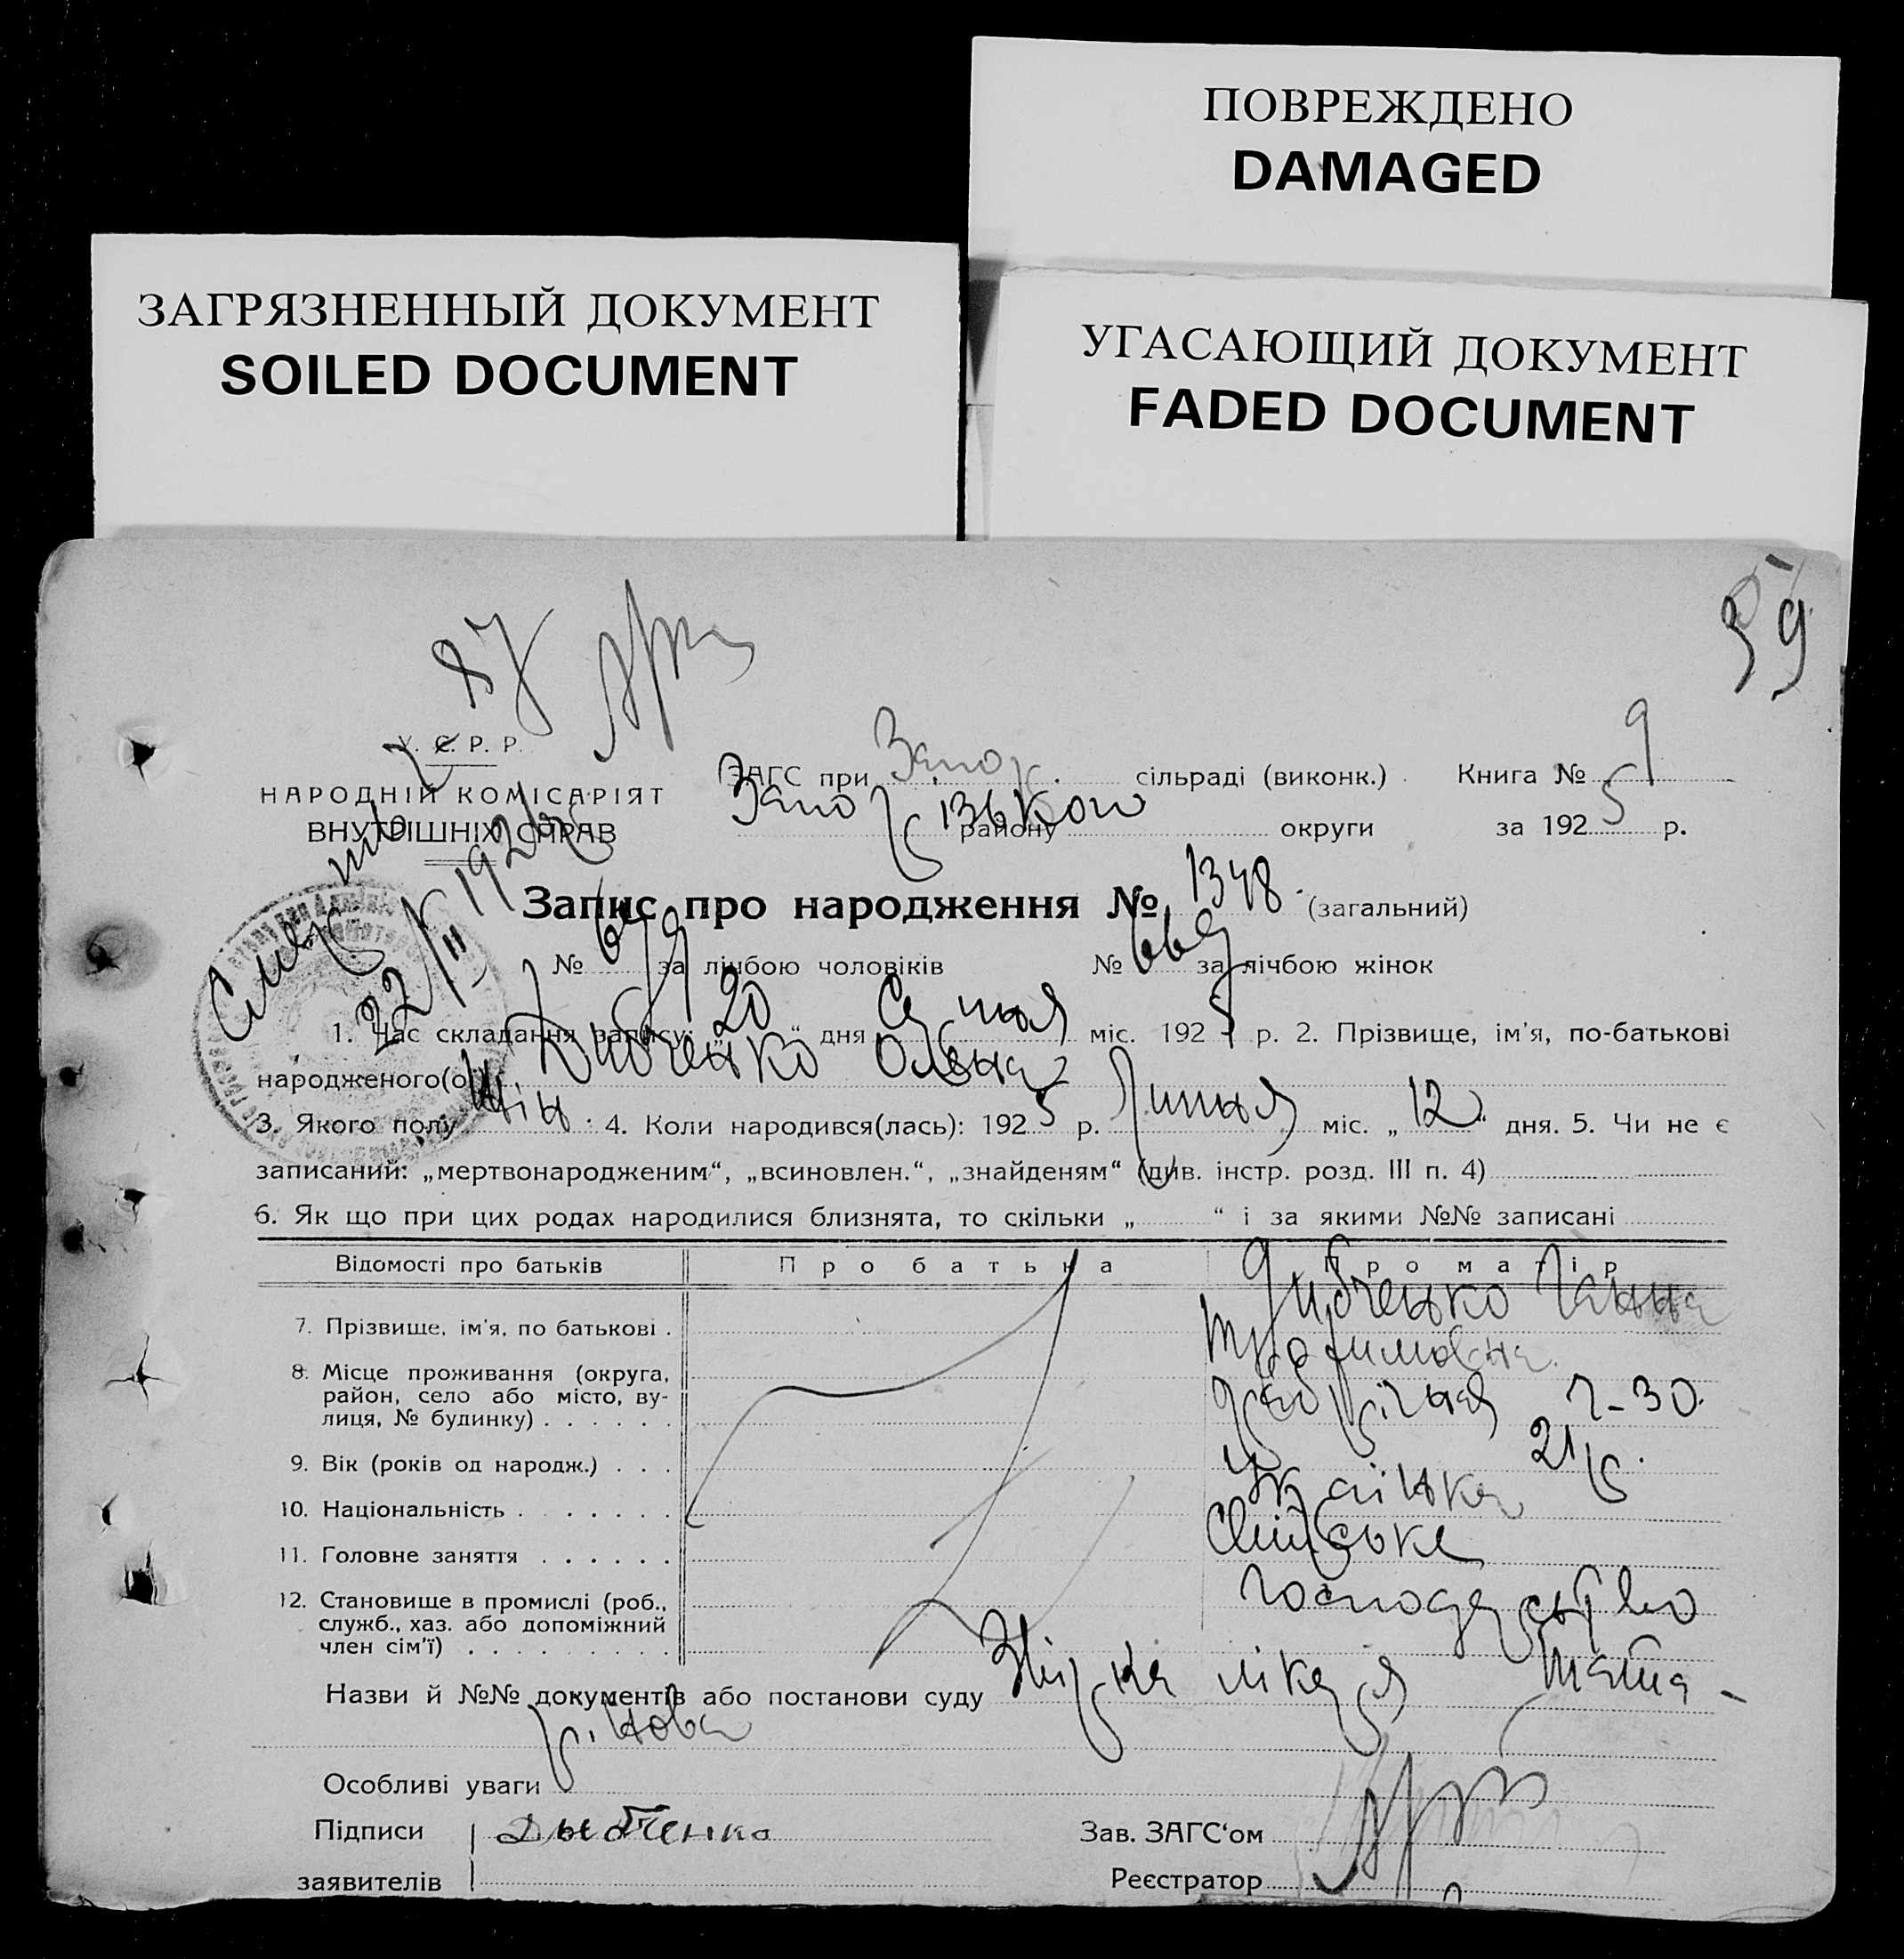 ПОВРЕЖДЕНО
DAMAGED
ЗАГРЯЗНЕННЫЙ ДОКУМЕНТ
SOILED DOCUMENT
УГАСАЮЩИЙ ДОКУМЕНТ
FADED DOCUMENT
87
59
У. С. Р. Р.
НАРОДНІЙ КОМІСАРІЯТ
ВНУТРІШНІХ СПРАВ
ЗАГС при Запор. сільраді (виконк.) Книга № 9
Запорізького району округи за 1925 р.
22/II 192
Запис про народження № 1348 (загальний)
№ 679 за лічбою чоловіків № 669 за лічбою жінок
1. Час складання запису: „20“ дня Серпня міс. 1925 р. 2. Прізвище, ім'я, по-батькові
народженого(ої) Дибченко Олена
3. Якого полу жін. 4. Коли народився(лась): 1925 р. Липня міс. „12“ дня. 5. Чи не є
записаний: „мертвонародженим“, „всиновлен.“, „знайденям“ (див. інстр. розд. III п. 4)
6. Як що при цих родах народилися близнята, то скільки „ “ і за якими №№ записані
Відомості про батьків Про батька Про матір
7. Прізвище, ім'я, по батькові . Дибченко Ганна
Трофимовна
8. Місце проживання (округа,
район, село або місто, ву-
лиця, № будинку) . . . . . . 2-30.
9. Вік (років од народж.) . . . 21 р.
10. Національність . . . . . . . Українка
11. Головне заняття . . . . . . Сільське
господарство
12. Становище в промислі (роб.,
служб., хаз. або допоміжний
член сім'ї) . . . . . . . . .
Назви й №№ документів або постанови суду лікаря
Особливі уваги
Підписи Дыбченко Зав. ЗАГС'ом
заявителів Реєстратор